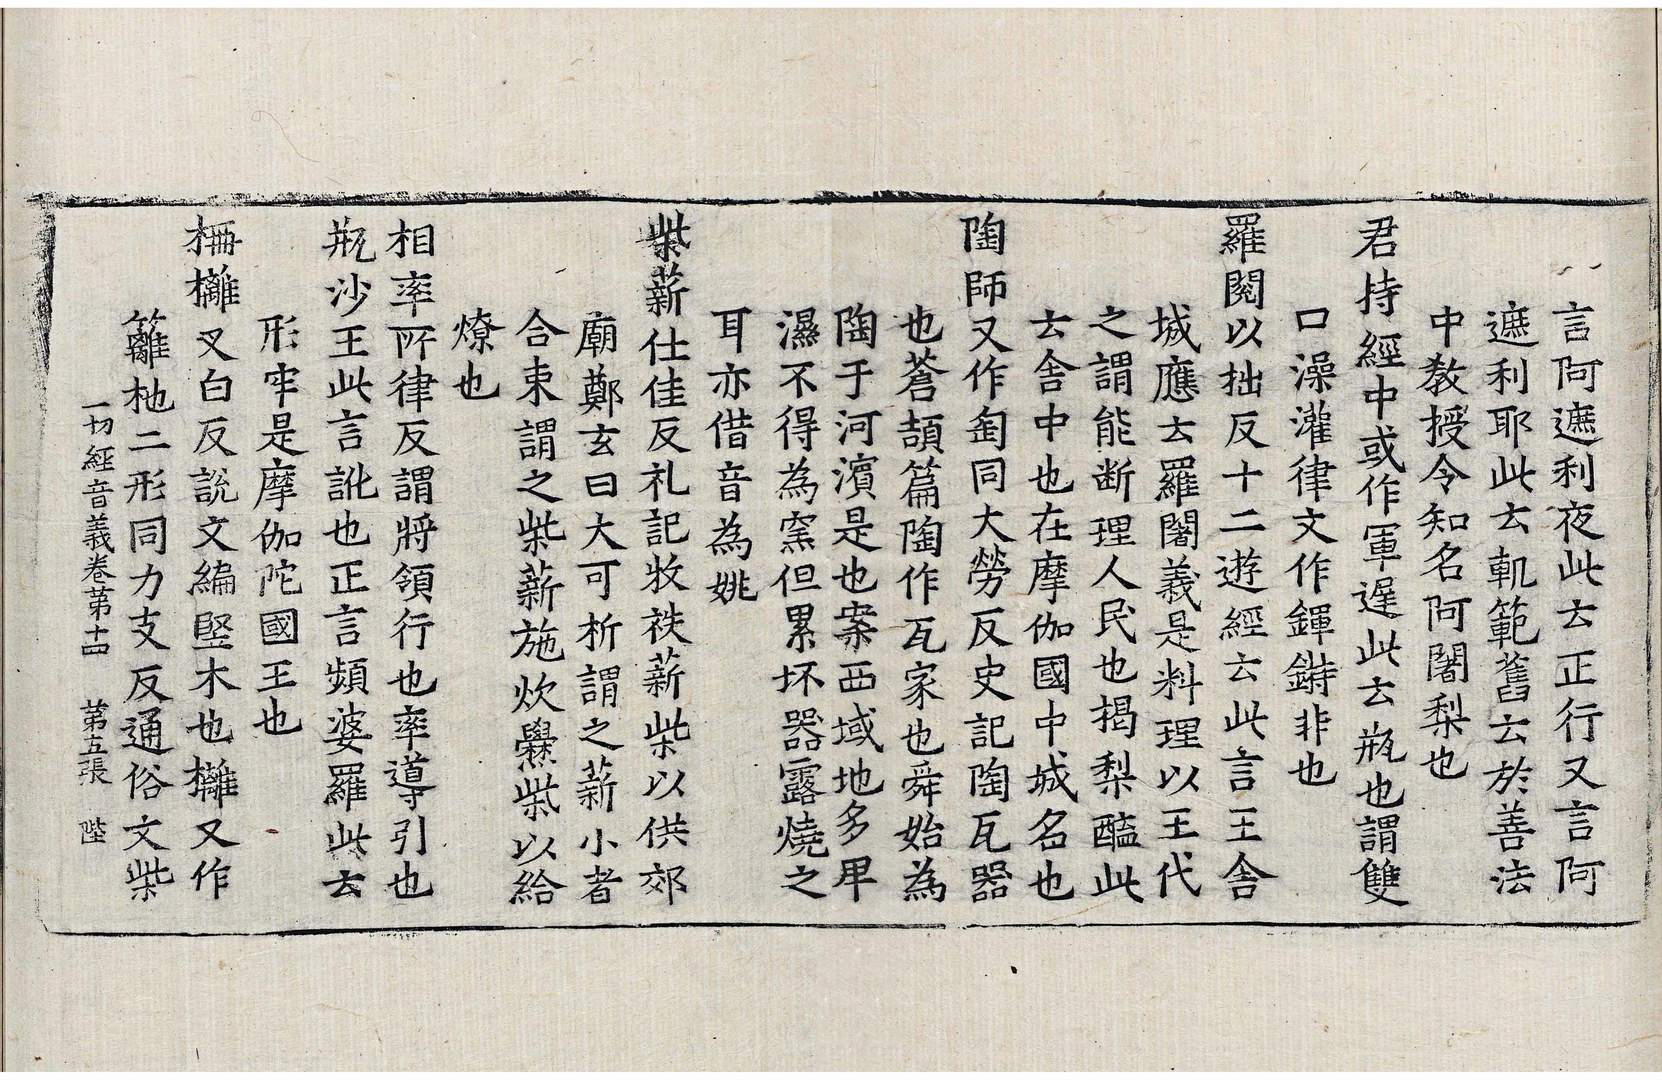 言阿遮利夜此云正行又言阿
遮利耶此云軌範舊云於善法
中教授令知名阿闍梨也
君持經中或作軍遲此云瓶也謂雙
口澡灌律文作鍕鍗非也
羅閱以拙反十二遊經云此言王舍
城應云羅闍義是料理以王代
之謂能断理人民也揭梨醯此
云舍中也在摩伽國中城名也
陶師又作匋同大勞反史記陶瓦器
也蒼頡篇陶作瓦家也舜始為
陶于河濱是也案西域地多卑
濕不得為窯但累坏器露燒之
耳亦借音為姚
柴薪仕佳反礼記收秩薪柴以供郊
廟鄭玄曰大可析謂之薪小者
合束謂之柴薪施炊爨柴以給
燎也
相率所律反謂將領行也率導引也
瓶沙王此言訛也正言頻婆羅此云
形牢是摩伽陀國王也
柵欐叉白反說文編竪木也欐又作
籬杝二形同力支反通俗文柴
一切經音義卷第十四　第五張　陛